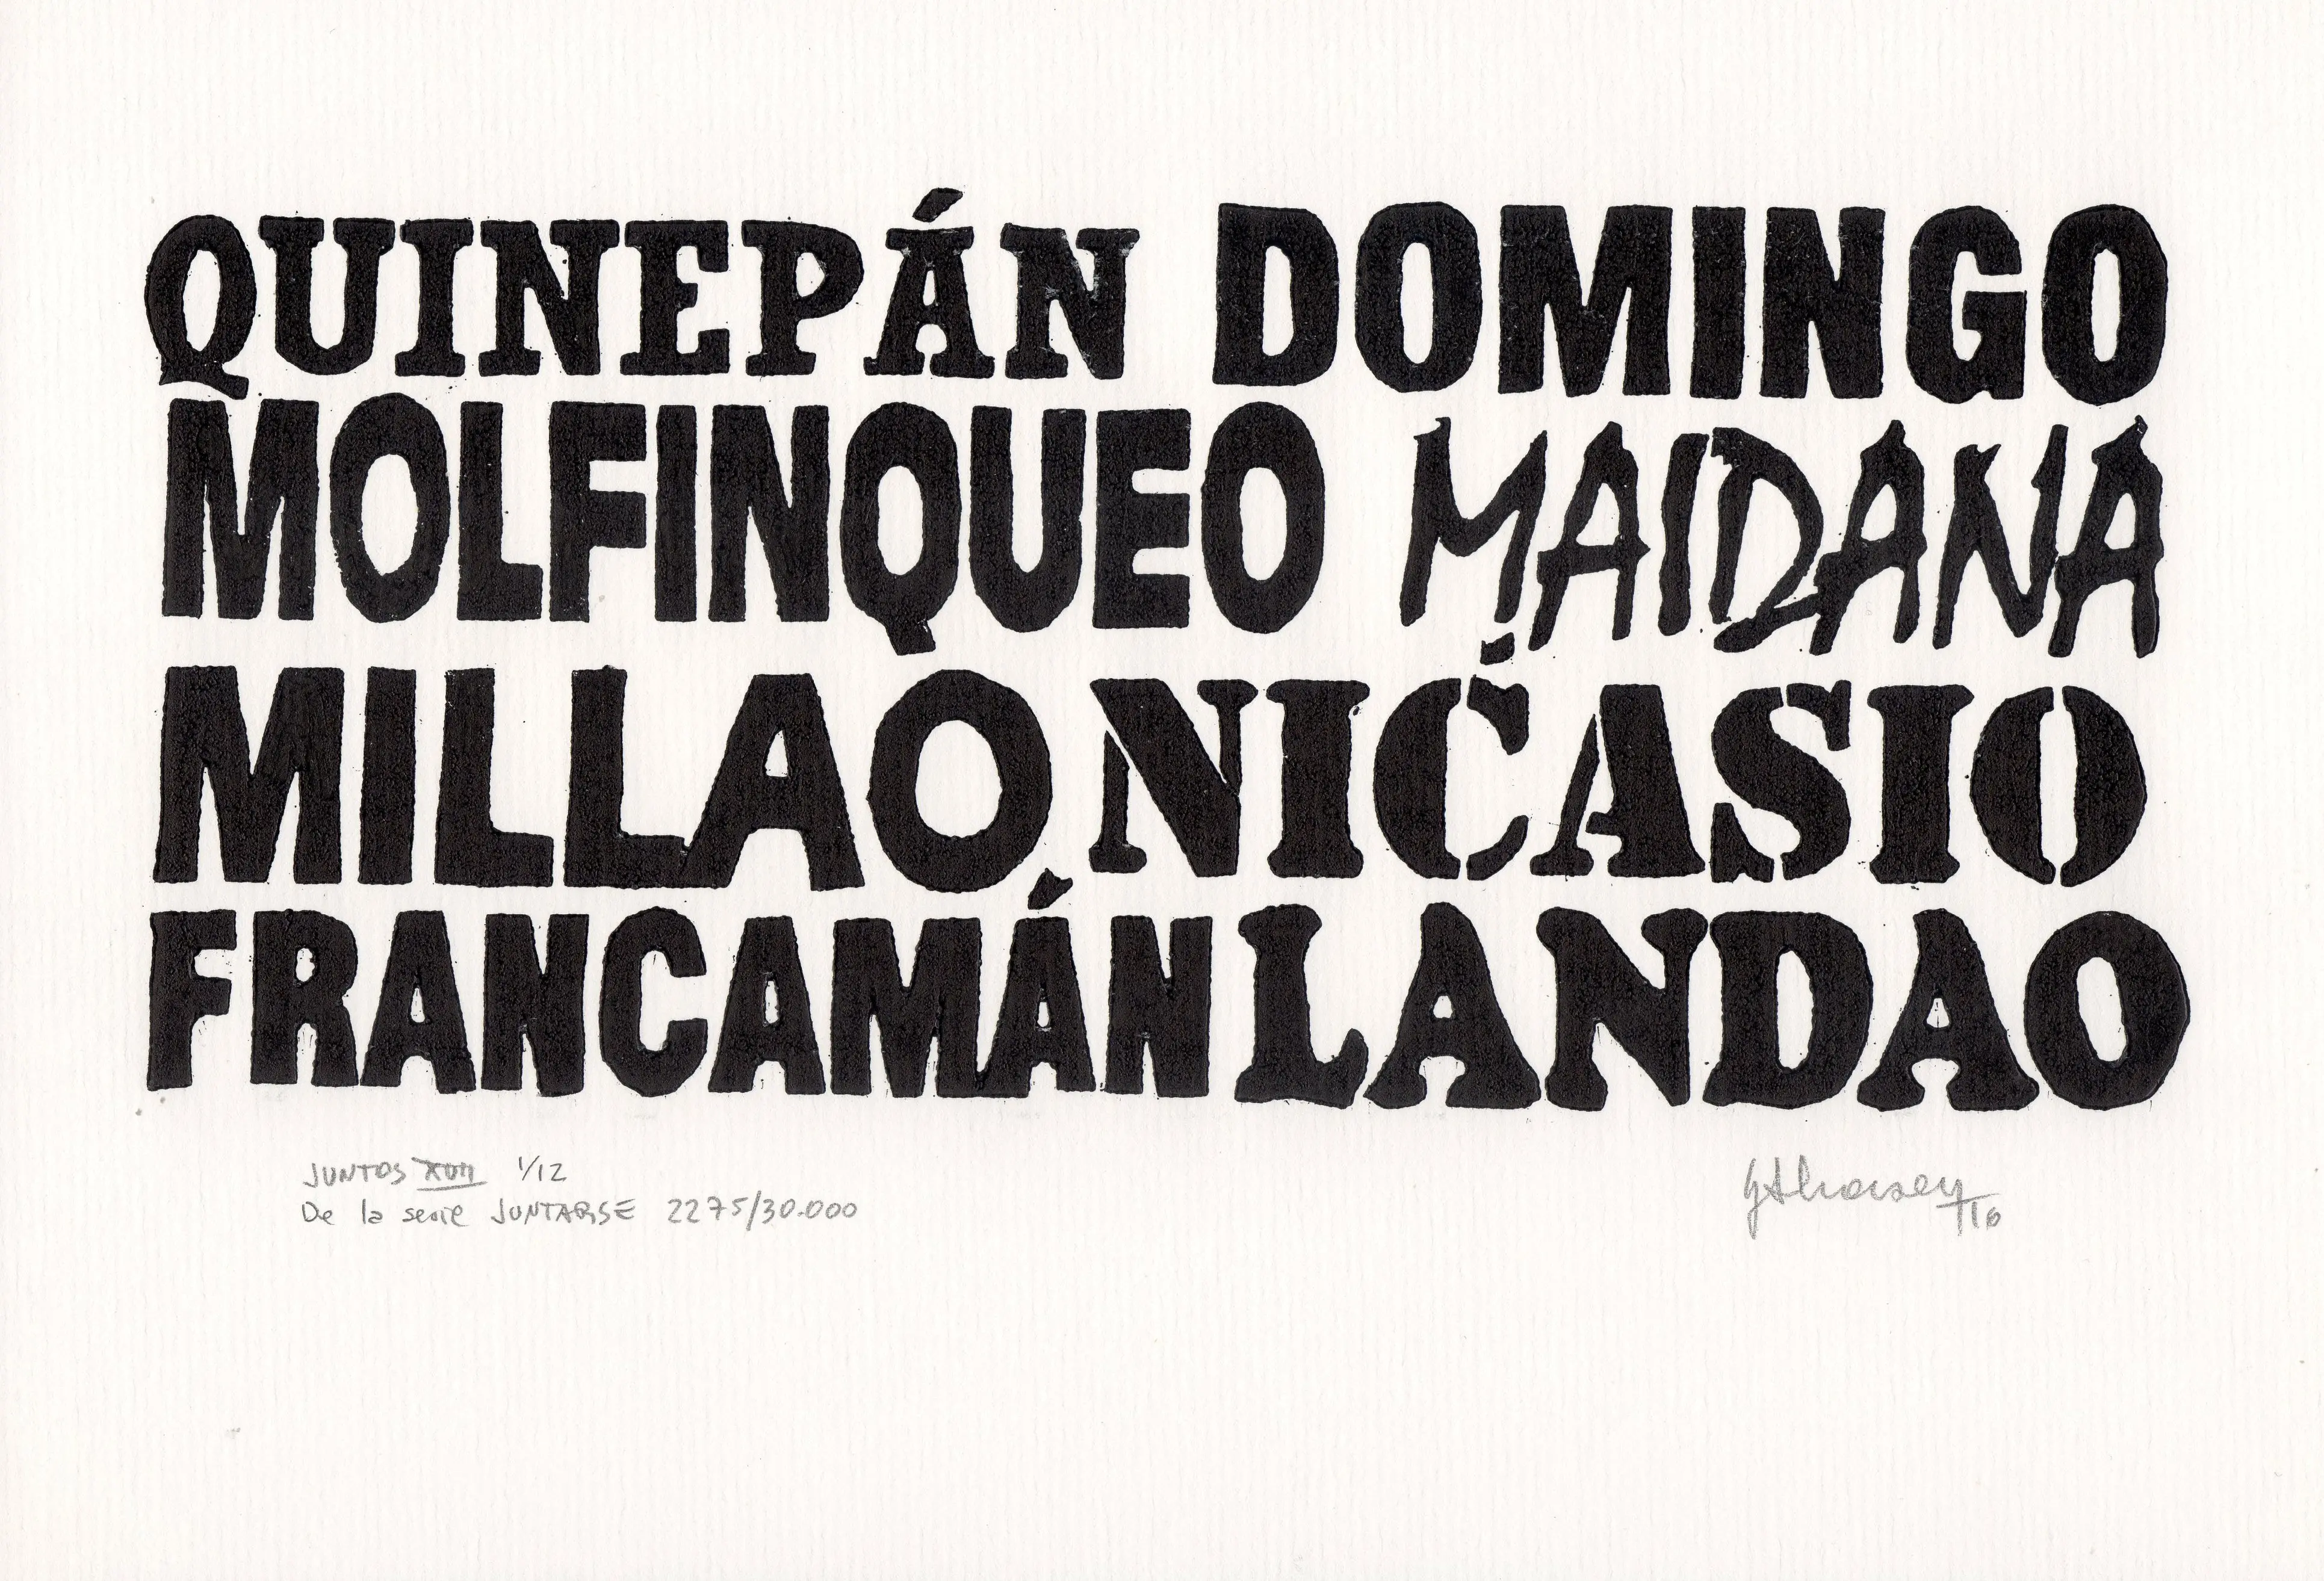 QUINEPÁN DOMINGO
MOLFINQUEO MAIDANA
MILLAO NICASIO
FRANCAMÁN LANDAO
JUNTOS XVII 1/12
De la serie JUNTARSE 2275/30.000